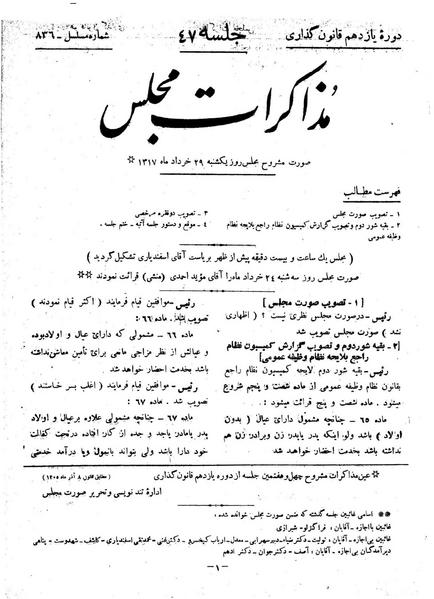 دورهٔ یازدهم قانون گذاری
جلسه ۴۷
شماره مسلسل - ۸۳۶
مذاکرات مجلس
صورت مشروح مجلس روز یکشنبه ۲۹ خرداد ماه ۱۳۱۷ *
فهرست مطالب
۱ - تصویب صورت مجلس
۲ - بقیه شور دوم و تصویب گزارش کمیسیون نظام راجع بلایحه نظام وظیفه عمومی
۳ - تصویب دو فقره مرخصی
۴ - موقع و دستور جلسه آتیه - ختم جلسه
( مجلس یك ساعت و بیست دقیقه پیش از ظهر بریاست آقای اسفندیاری تشکیل گردید )
صورت مجلس روز سه شنبه ۲۴ خرداد ماه را آقای مؤید احمدی (منشی) قرائت نمودند **
[ ۱ - تصویب صورت مجلس ]
رئیس - در صورت مجلس نظری نیست ؟ ( اظهاری
نشد ) صورت مجلس تصویب شد
[۲ - بقیه شور دوم و تصویب گزارش کمیسیون نظام
راجع بلایحه نظام وظیفه عمومی]
رئیس - بقیه شور دوم لایحه گزارش کمیسیون نظام راجع
بقانون نظام وظیفه عمومی از ماده شصت و پنجم شروع
میشود . ماده شصت و پنج قرائت میشود :
ماده ۶۵ - چنانچه مشمول دارای عیال ( بدون
اولاد ) باشد ولو اینکه پدر یا پدر زن و برادر زن هم
نداشته باشد بخدمت احضار خواهد شد
رئیس - موافقین قیام فرمایند ( اکثر قیام نمودند )
تصویب شد . ماده ۶۶ :
ماده ۶۶ - مشمولی که دارای عیال و اولاد بوده
و عیالش از نظر مزاجی مانعی برای تأمین معاش نداشته
باشد بخدمت احضار خواهد شد
رئیس - موافقین قیام فرمایند ( اغلب برخاستند )
تصویب شد . ماده ۶۷ :
ماده ۶۷ - چنانچه مشمولی علاوه بر عیال و اولاد
پدر یا مادر یا جد و جده از کار افتاده در تحت کفالت
خود دارا باشد ولی بتواند با نمول و یا درآمد خدمتی
* عین مذاکرات مشروح چهل و هفتمین جلسه از دوره یازدهم قانون گذاری
(مطابق قانون ۸ آذر ماه ۱۳۰۵)
اداره تند نویسی و تحریر صورت مجلس
** اسامی غائبین جلسه گذشته که ضمن صورت مجلس خوانده شده :
غائبین با اجازه - آقایان : قراگزلو - شیرازی
غائبین بی اجازه - آقایان : تولیت - دکتر ضیاء - دبیر سهرابی - معدل - ارباب کیخسرو - دکتر غنی - محمد تقی اسفندیاری - کاشف - شهدوست - پناهی
دیرآمدگان بی اجازه - آقایان : آصف - دکتر جوان - دکتر ادهم
- ۱ -